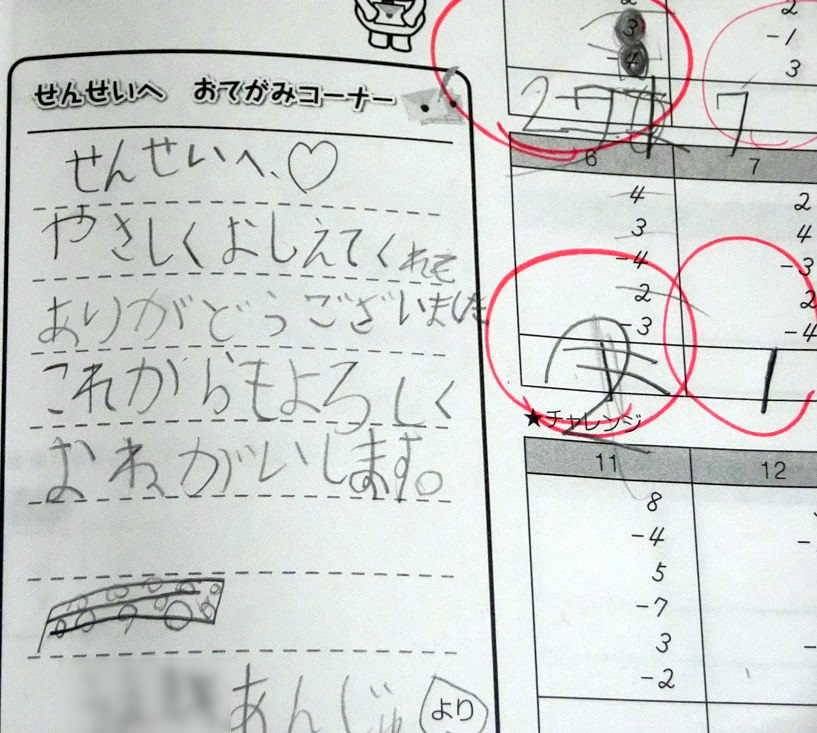 せんせいへ おてがみコーナー
せんせいへ、♡
やさしくおしえてくれて
ありがどうございました
これからもよろしく
おねがいします。
あんじゅ より
2
3
-4
7
2
-1
3
7
6
4
3
-4
2
-3
2
7
2
4
-3
2
-4
1
★チャレンジ
11
8
-4
5
-7
3
-2
12